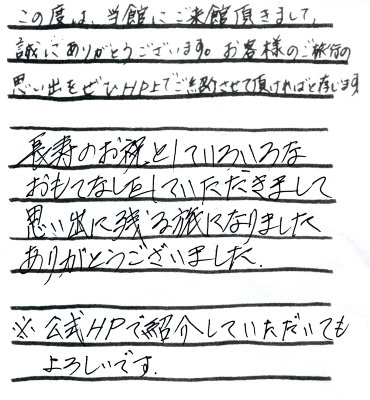 この度は、当館にご来館頂きまして、
誠にありがとうございます。お客様のご旅行の
思い出をぜひHP上でご紹介させて頂ければと存じます
長寿のお祝としていろいろな
おもてなしをしていただきまして
思い出に残る旅になりました
ありがとうございました.
※ 公式HPで紹介していただいても
よろしいです.